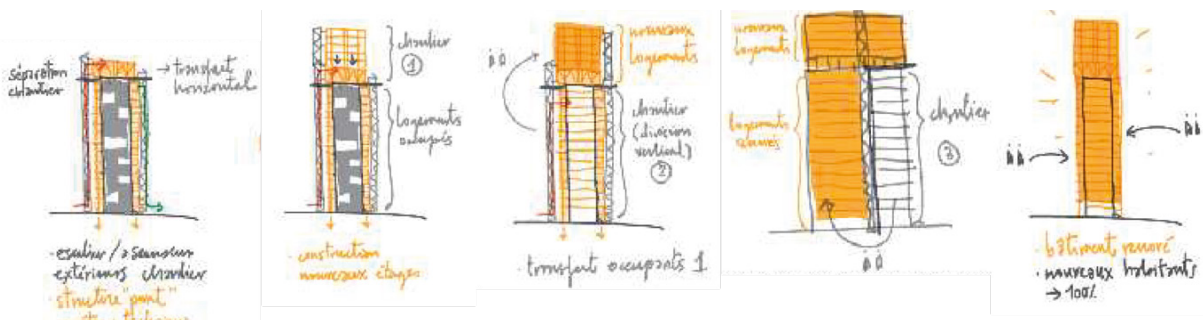 séparation
chantier
→ transfert
horizontal
· escalier / ascenseur
extérieurs chantier
· structure "pont"
chantier
1
logements
occupés
· construction
nouveaux étages
nouveaux
logements
chantier
(division
vertical)
2
· transfert occupants 1
nouveaux
logements
logements
rénovés
chantier
3
· bâtiment renové
· nouveaux habitants
→ 100%